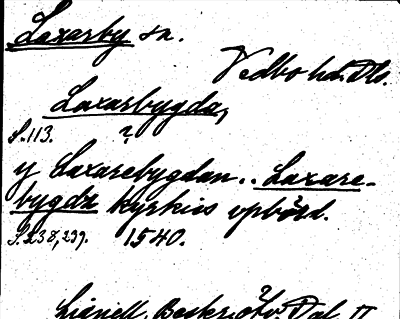 Laxarby sn.
Vedbo hd. Dls.
Laxarbygda,
S. 113. ?
y Laxarebygdan.. Laxare-
bygda kyrkies vpbörd.
S. 238, 239. 1540.
Lignell, Beskrifv. Dal II